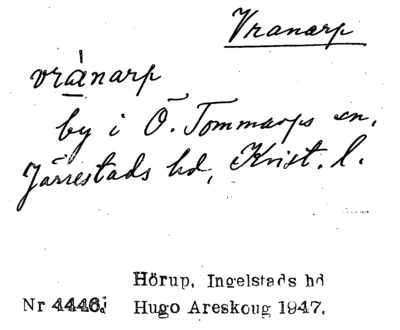 Vranarp
vrànarp
by i Ö. Tommarps sn,
Järrestads hd, Krist. l.
Hörup, Ingelstads hd
Nr 4446. Hugo Areskoug 1947.